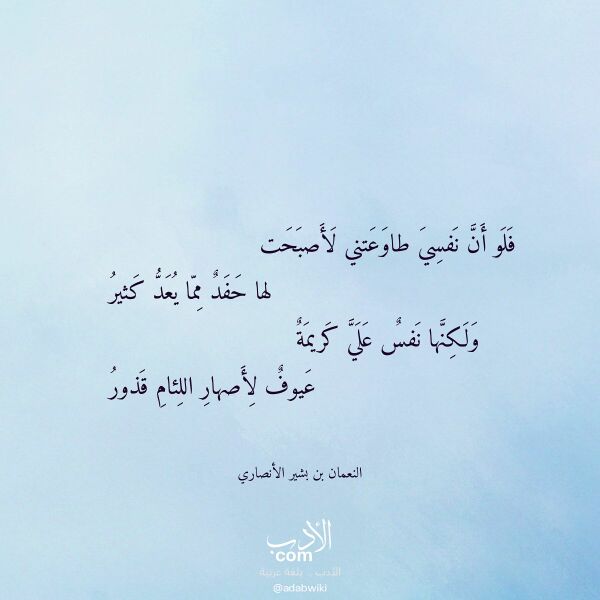 فَلَو أَنَّ نَفسِيَ طاوَعَتني لَأَصبَحَت
لها حَفَدٌ مِمّا يُعَدُّ كَثيرُ
وَلَكِنَّها نَفسٌ عَلَيَّ كَريمَةٌ
عَيوفٌ لِأَصهارِ اللِئامِ قَذورُ
النعمان بن بشير الأنصاري
الأدب
com
الأدب .. بلغة عربية
@adabwiki